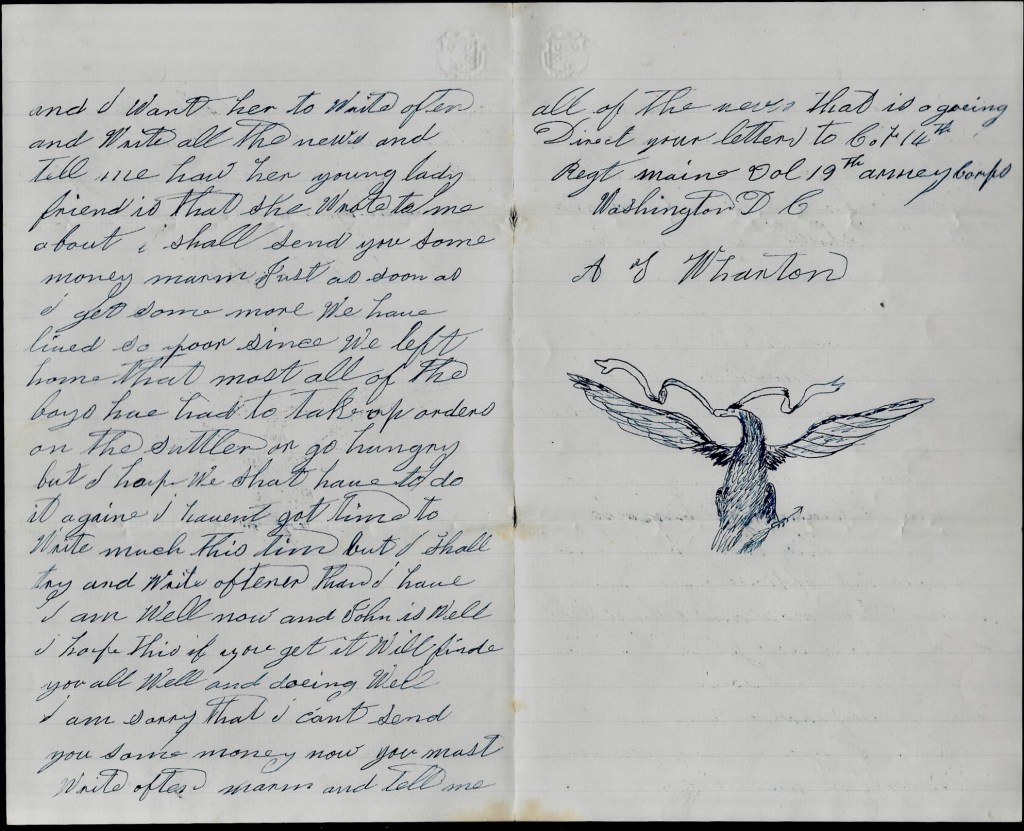 and i Want her to Write often
and Write all the news and
tell me how her young lady
friend is that she Wrote to me
about i shall send you some
money marm Just as soon as
i get some more We have
lived so poor since We left
home that most all of the
boys hae had to take up orders
on the suttler or go hungry
but i hope We shat have to do
it againe i havent got time to
Write much this tim but i shall
try and Write oftener than i have
i am Well now and John is Well
i hope this if you get it Will finde
you all Well and doeing Well
i am sorry that i cant send
you some money now you must
Write often marm and tell me
all of the news that is agoeing
Direct your letters to Co F 14th
Regt maine Vol 19th armey Corps
Washington D C
A J Wharton